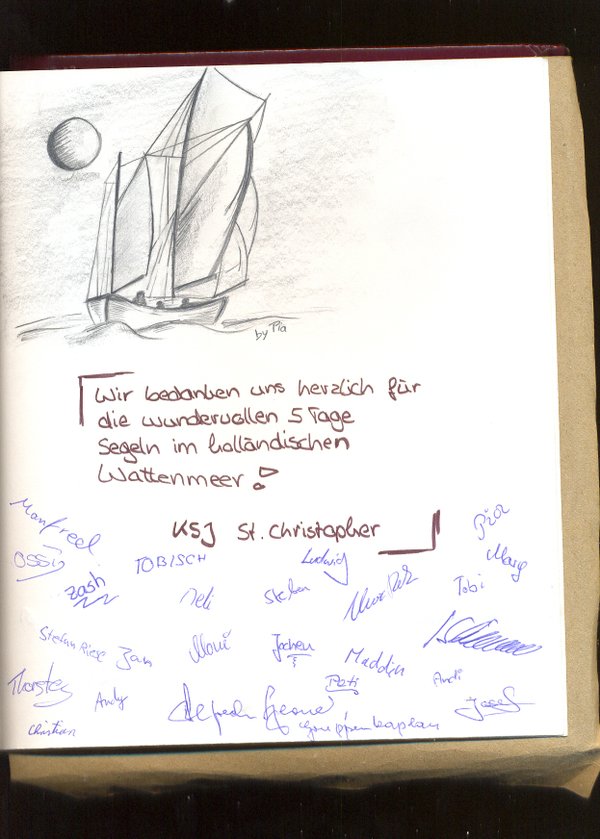 by Pia
Wir bedanken uns herzlich für
die wundervollen 5 Tage
Segeln im holländischen
Wattenmeer!
KSJ St. Christopher
Manfred
Pia
Ossi
TOBISCH
Ludwig
Marg
zash
Stefan
Tobi
Stefan Riese
Jan
Jochen
Maddin
Thorsten
Andy
Peti
Andi
Josef
Gruppenkaplan
Christian